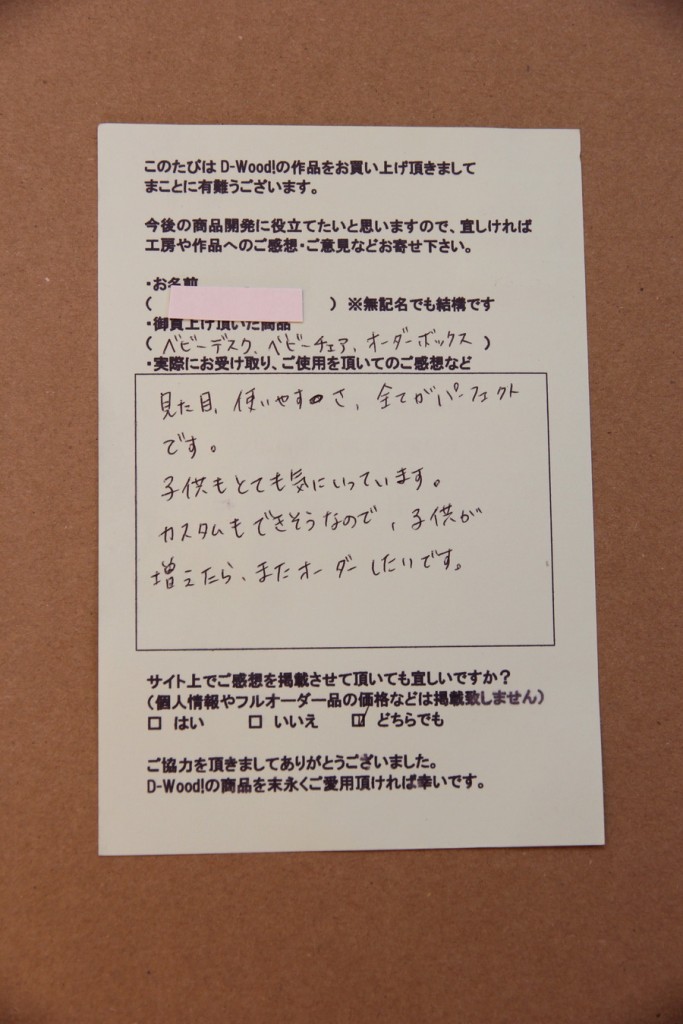 このたびは D-Wood!の作品をお買い上げ頂きまして
まことに有難うございます。
今後の商品開発に役立てたいと思いますので、宜しければ
工房や作品へのご感想・ご意見などお寄せ下さい。
・お名前
( ) ※無記名でも結構です
・御買上げ頂いた商品
( ベビーデスク、ベビーチェア、オーダーボックス )
・実際にお受け取り、ご使用を頂いてのご感想など
見た目、使いやすさ、全てがパーフェクト
です。
子供もとても気にいっています。
カスタムもできそうなので、子供が
増えたら、またオーダーしたいです。
サイト上でご感想を掲載させて頂いても宜しいですか？
(個人情報やフルオーダー品の価格などは掲載致しません)
□ はい □ いいえ ☑ どちらでも
ご協力を頂きましてありがとうございました。
D-Wood!の商品を末永くご愛用頂ければ幸いです。